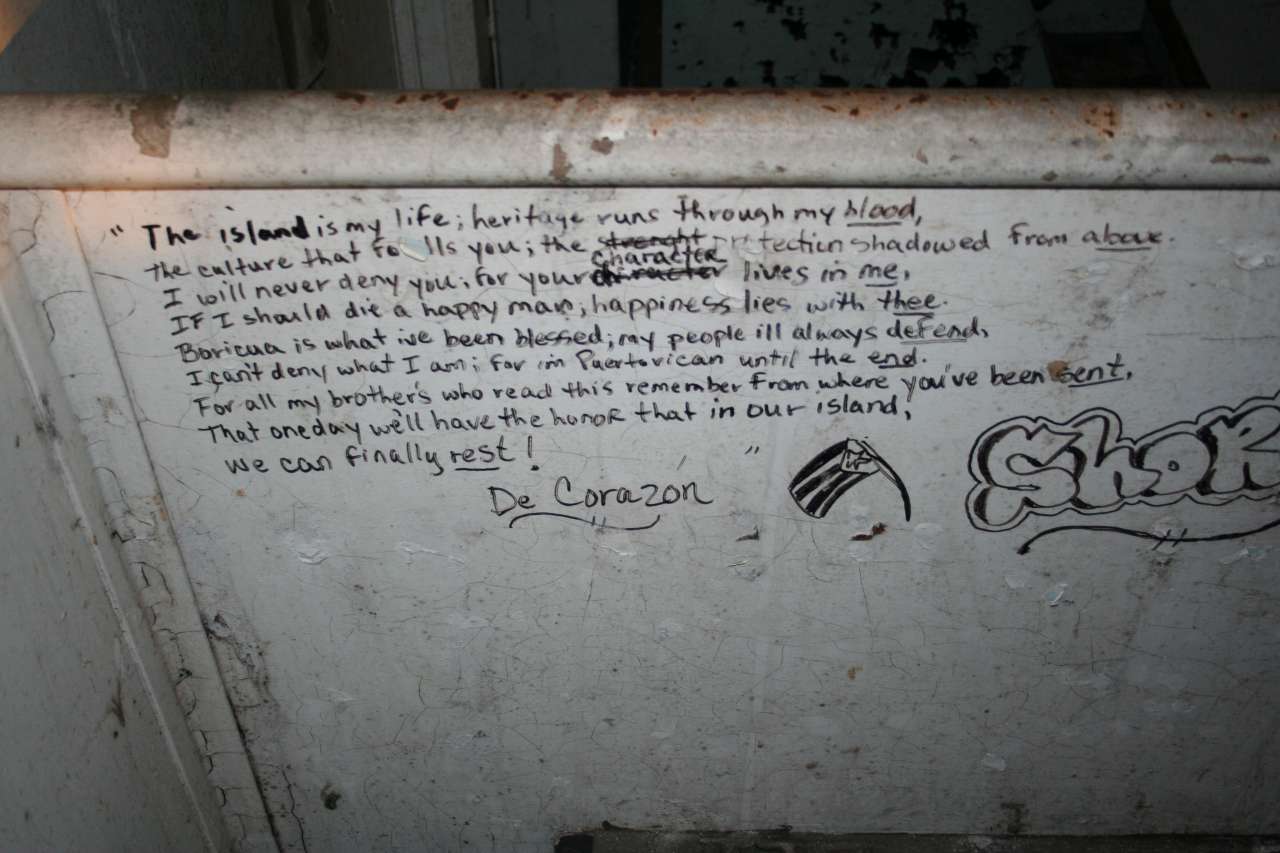 "The island is my life; heritage runs through my blood,
the culture that fo lls you; the strenght protection shadowed from above.
I will never deny you; for your character character lives in me,
IF I should die a happy man; happiness lies with thee.
Boricua is what ive been blessed; my people ill always defend,
I can't deny what I am; for im Puertorican until the end.
For all my brother's who read this remember from where you've been sent,
That oneday we'll have the honor that in our island,
we can finally rest! "
De Corazon
ShoR